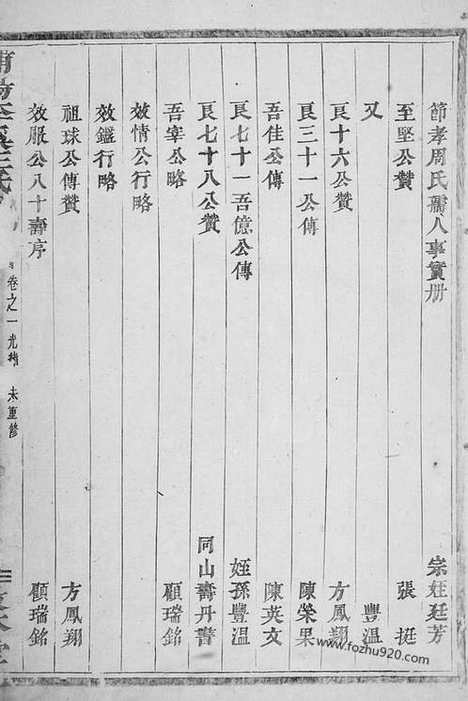 節孝周氏孺人事實册 宗姪廷芳
至堅公贊 張挺
又 豐溫
良十六公贊 方鳳翔
良三十一公傳 陳榮果
吾佳公傳 陳英文
良七十一吾億公傳 姪孫豐溫
良七十八公贊 同山壽丹書
吾宰公略 顧瑞銘
效情公行略
效鑑行略
祖球公傳贊 方鳳翔
效服公八十壽序 顧瑞銘
卷之一 光緒 未重修
www.fozhu920.com